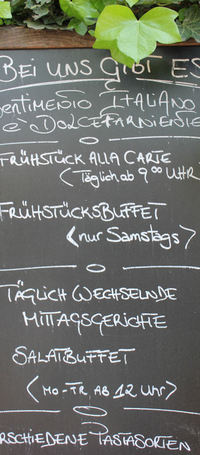 BEI UNS GIBT ES
SENTIMENTO ITALIANO
e DOLCEFARNIENTE
FRÜHSTÜCK ALLA CARTE
(Täglich, ab 9⁰⁰ UHR
FRÜHSTÜCKSBUFFET
<nur Samstags>
TÄGLICH WECHSELNDE
MITTAGSGERICHTE
SALATBUFFET
<MO-FR, AB 12 Uhr>
ERSCHIEDENE PASTASORTEN